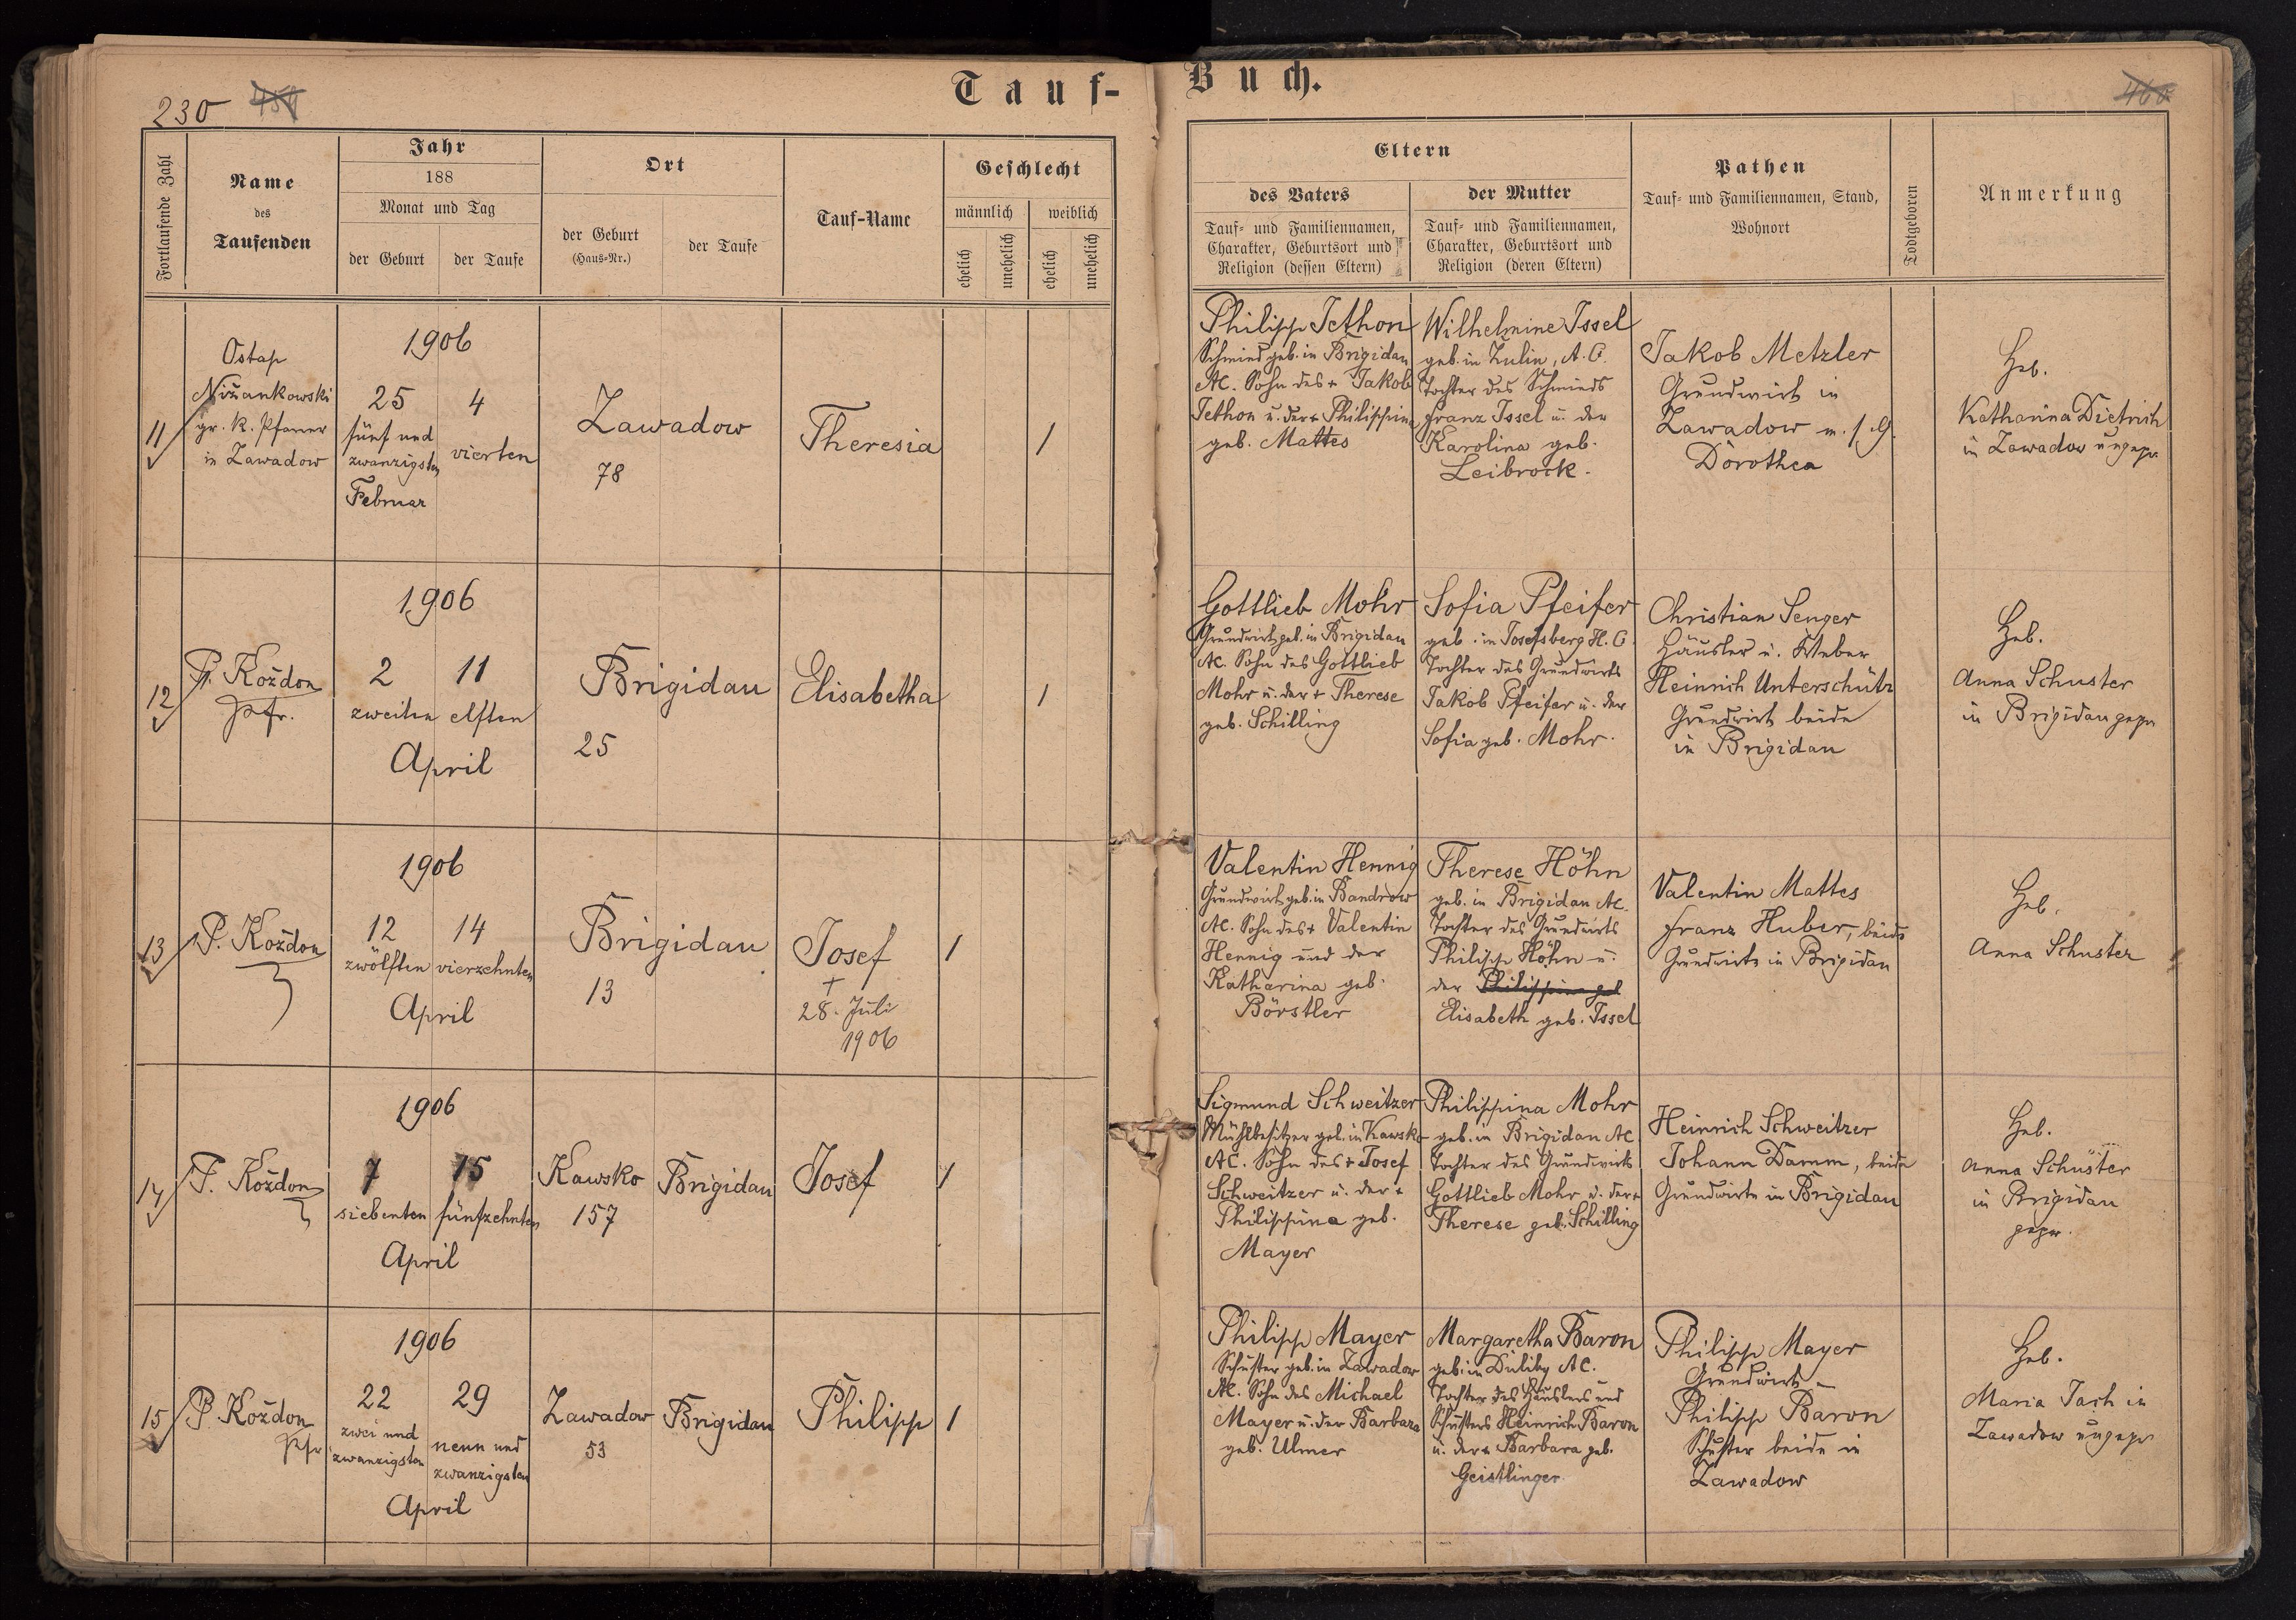 Tauf-Buch.
230
Fortlaufende Zahl
Name
des
Taufenden
Jahr
188
Monat und Tag
der Geburt
der Taufe
Ort
der Geburt
(Haus-Nr.)
der Taufe
Tauf-Name
Geschlecht
männlich
weiblich
ehelich
unehelich
ehelich
unehelich
Eltern
des Vaters
Tauf- und Familiennamen,
Charakter, Geburtsort und
Religion (dessen Eltern)
der Mutter
Tauf- und Familiennamen,
Charakter, Geburtsort und
Religion (deren Eltern)
Pathen
Tauf- und Familiennamen, Stand,
Wohnort
Todtgeboren
Anmerkung
11
Ostap
Nižankowski
gr. k. Pfarrer
in Zawadow
1906
25
fünf und
zwanzigsten
Februar
4
vierten
Zawadow
78
Theresia
1
Philipp Jethon
Schmied geb. in Brigidau
AC. Sohn des + Jakob
Jethon u. der + Philippine
geb. Mattes
Wilhelmine Issel
geb. in Zulin, A.C.
Tochter des Schmieds
Franz Issel u. der
Karolina geb.
Leibrock.
Jakob Metzler
Grundwirt in
Zawadow m. s. G.
Dorothea
Heb.
Katharina Dietrich
in Zawadow ungepr
12
P. Koždon
Pfr.
1906
2
zweiten
11
elften
April
Brigidau
25
Elisabetha
1
Gottlieb Mohr
Grundwirt geb. in Brigidau
AC. Sohn des Gottlieb
Mohr u. der + Therese
geb. Schilling
Sofia Pfeifer
geb. in Josefsberg H.C.
Tochter des Grundwirts
Jakob Pfeifer u. der
Sofia geb. Mohr.
Christian Senger
Häusler u. Weber
Heinrich Unterschütz
Grundwirt beide
in Brigidau
Heb.
Anna Schuster
in Brigidau gepr
13
P. Koždon
1906
12
zwölften
14
vierzehnten
April
Brigidau
13
Josef
+
28. Juli
1906
1
Valentin Hennig
Grundwirt geb. in Bandrow
AC. Sohn des + Valentin
Hennig und der
Katharina geb.
Börstler
Therese Höhn
geb. in Brigidau AC.
Tochter des Grundwirts
Philipp Höhn u.
der Philippine geb
Elisabeth geb. Issel
Valentin Mattes
Franz Huber, beide
Grundwirte in Brigidau
Heb.
Anna Schuster
14
P. Koždon
1906
7
siebenten
15
fünfzehnten
April
Kawsko
157
Brigidau
Josef
1
Sigmund Schweitzer
Mühlbesitzer geb. in Kawsko
AC. Sohn des + Josef
Schweitzer u. der +
Philippina geb.
Mayer
Philippina Mohr
geb. in Brigidau AC
Tochter des Grundwirts
Gottlieb Mohr u. der +
Therese geb. Schilling
Heinrich Schweitzer
Johann Damm, beide
Grundwirte in Brigidau
Heb.
Anna Schuster
in Brigidau
gepr.
15
P. Koždon
Pfr
1906
22
zwei und
zwanzigsten
29
neun und
zwanzigsten
April
Zawadow
53
Brigidau
Philipp
1
Philipp Mayer
Schuster geb. in Zawadow
AC. Sohn des Michael
Mayer u. der Barbara
geb. Ulmer
Margaretha Baron
geb. in Duliby AC.
Tochter des Häuslers und
Schusters Heinrich Baron
u. der + Barbara geb.
Geistlinger
Philipp Mayer
Grundwirt –
Philipp Baron
Schuster beide in
Zawadow
Heb.
Maria Jach in
Zawadow ungepr